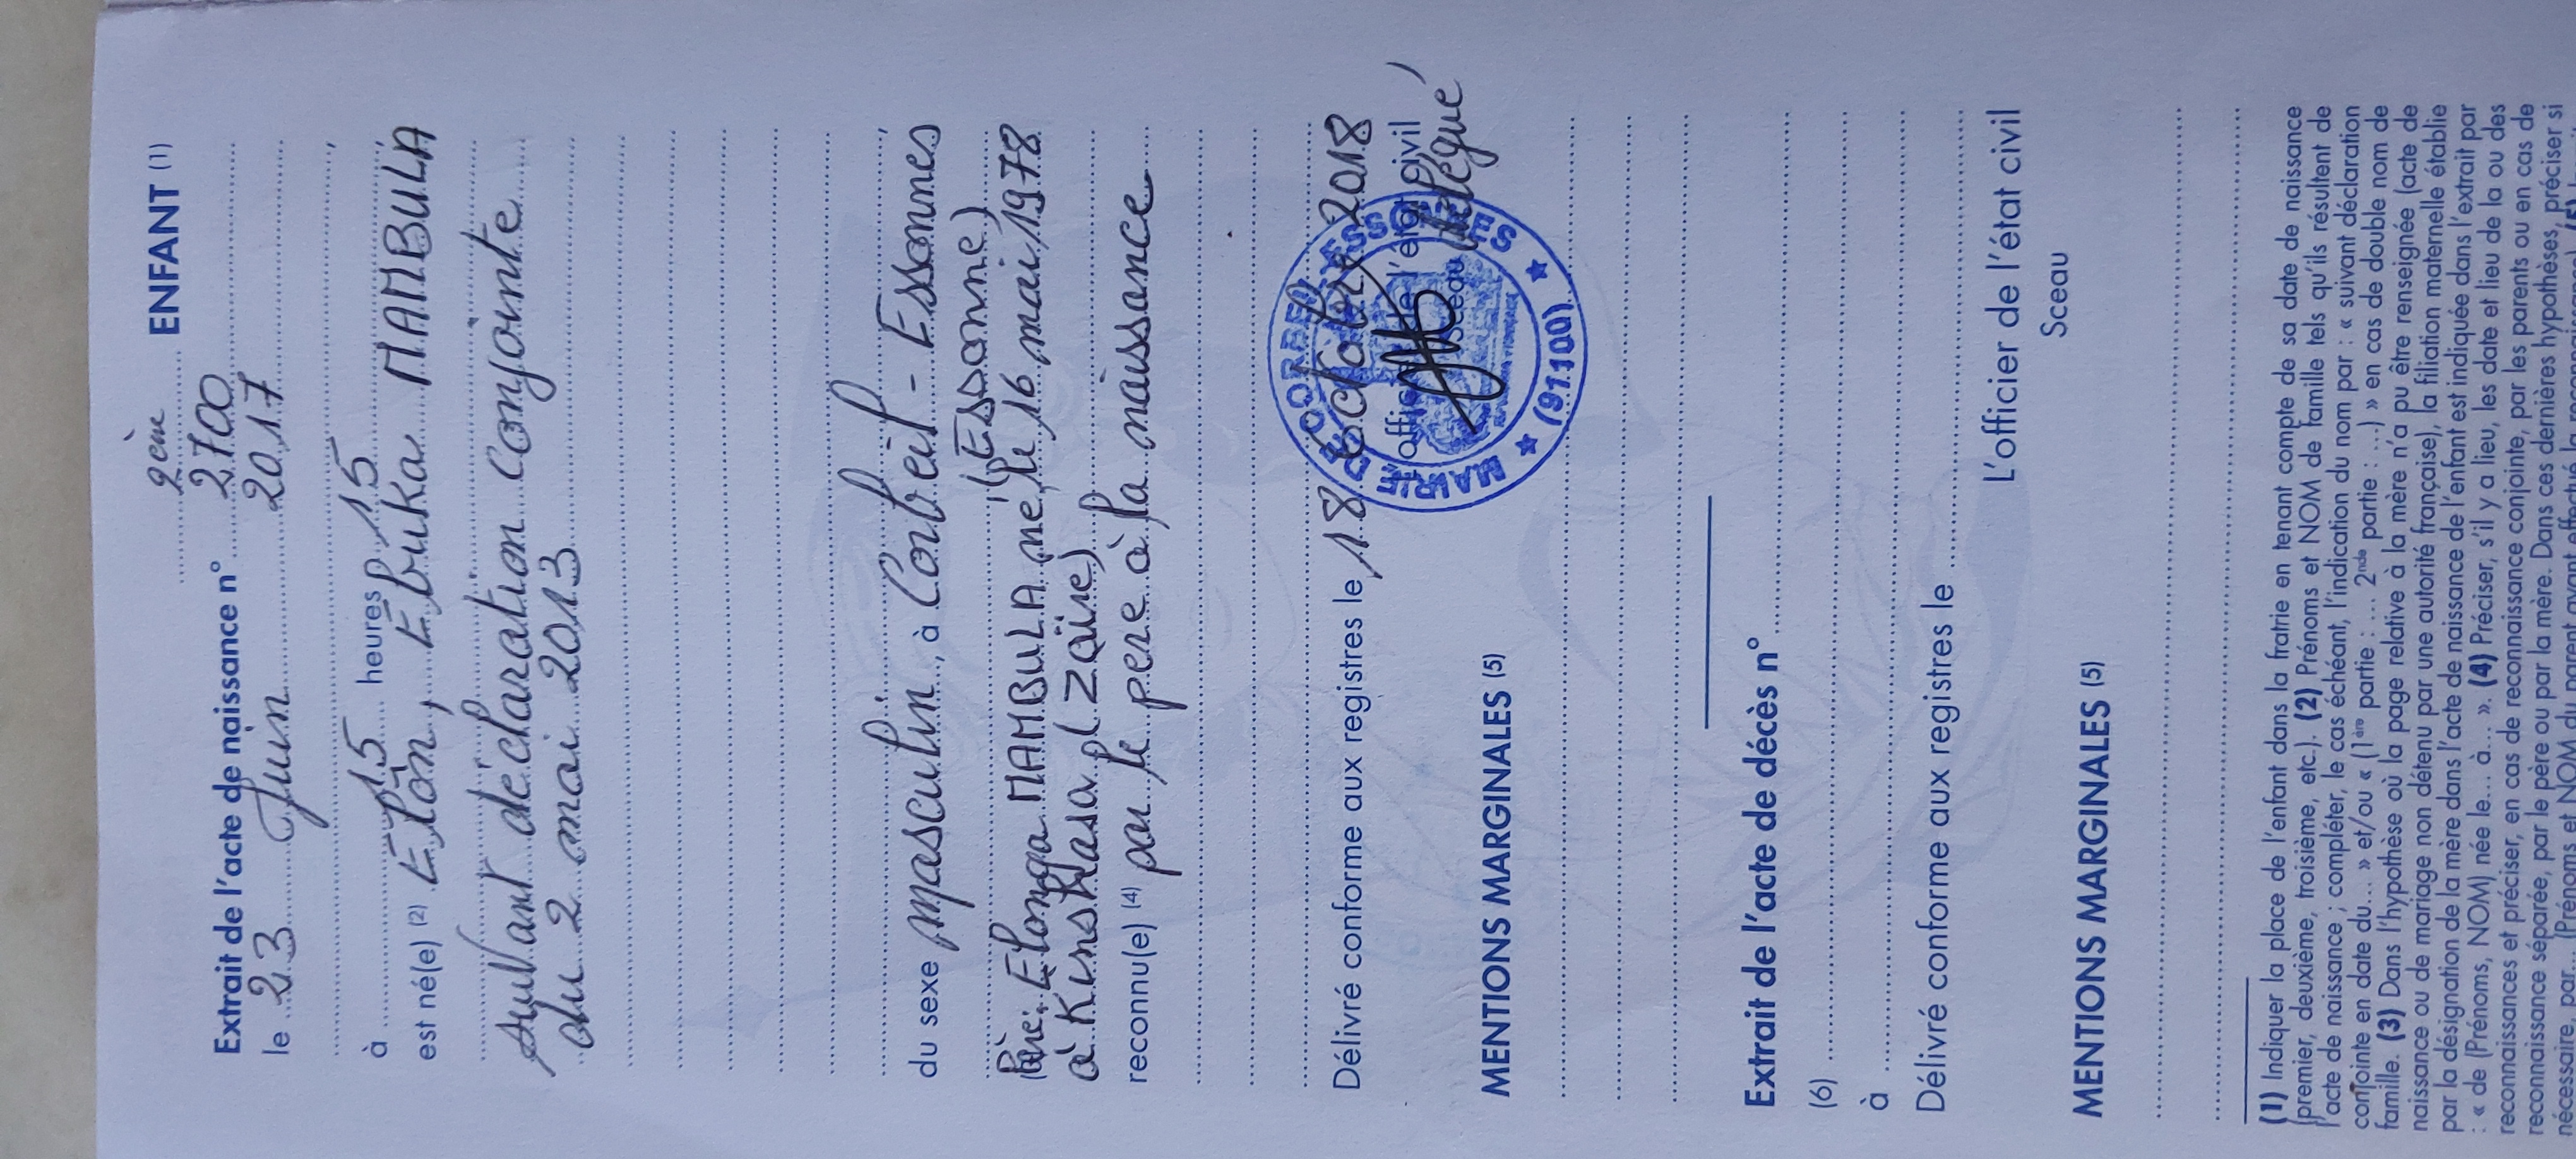 2ème ENFANT (1)
Extrait de l'acte de naissance n° 2700
le 23 Juin 2017
à 15 heures 15
est né(e) (2) Elón, Ebuka MAMBULA
suivant déclaration conjointe
du 2 mai 2013
du sexe masculin, à Corbeil-Essonnes
(Essonne)
(Père: Elonga MAMBULA né le 16 mai 1978
à Kinshasa (Zaïre)
reconnu(e) (4) par le père à la naissance
Délivré conforme aux registres le 18 octobre 2018
L'officier de l'état civil
Sceau délégué
MAIRIE DE CORBEIL-ESSONNES
(91100)
MENTIONS MARGINALES (5)
Extrait de l'acte de décès n°
(6)
à
Délivré conforme aux registres le
L'officier de l'état civil
Sceau
MENTIONS MARGINALES (5)
(1) Indiquer la place de l'enfant dans la fratrie en tenant compte de sa date de naissance
(premier, deuxième, troisième, etc.). (2) Prénoms et NOM de famille tels qu'ils résultent de
l'acte de naissance ; compléter, le cas échéant, l'indication du nom par : « suivant déclaration
conjointe en date du... » et/ou « (1ère partie : .... 2nde partie : ...) » en cas de double nom de
famille. (3) Dans l'hypothèse où la page relative à la mère n'a pu être renseignée (acte de
naissance ou de mariage non détenu par une autorité française), la filiation maternelle établie
par la désignation de la mère dans l'acte de naissance de l'enfant est indiquée dans l'extrait par
: « de (Prénoms, NOM) née le... à... ». (4) Préciser, s'il y a lieu, les date et lieu de la ou des
reconnaissances et préciser, en cas de reconnaissance conjointe, par les parents ou en cas de
reconnaissance séparée, par le père ou par la mère. Dans ces dernières hypothèses, préciser si
nécessaire, par... (Prénoms et NOM du parent ayant effectué la reconnaissance).